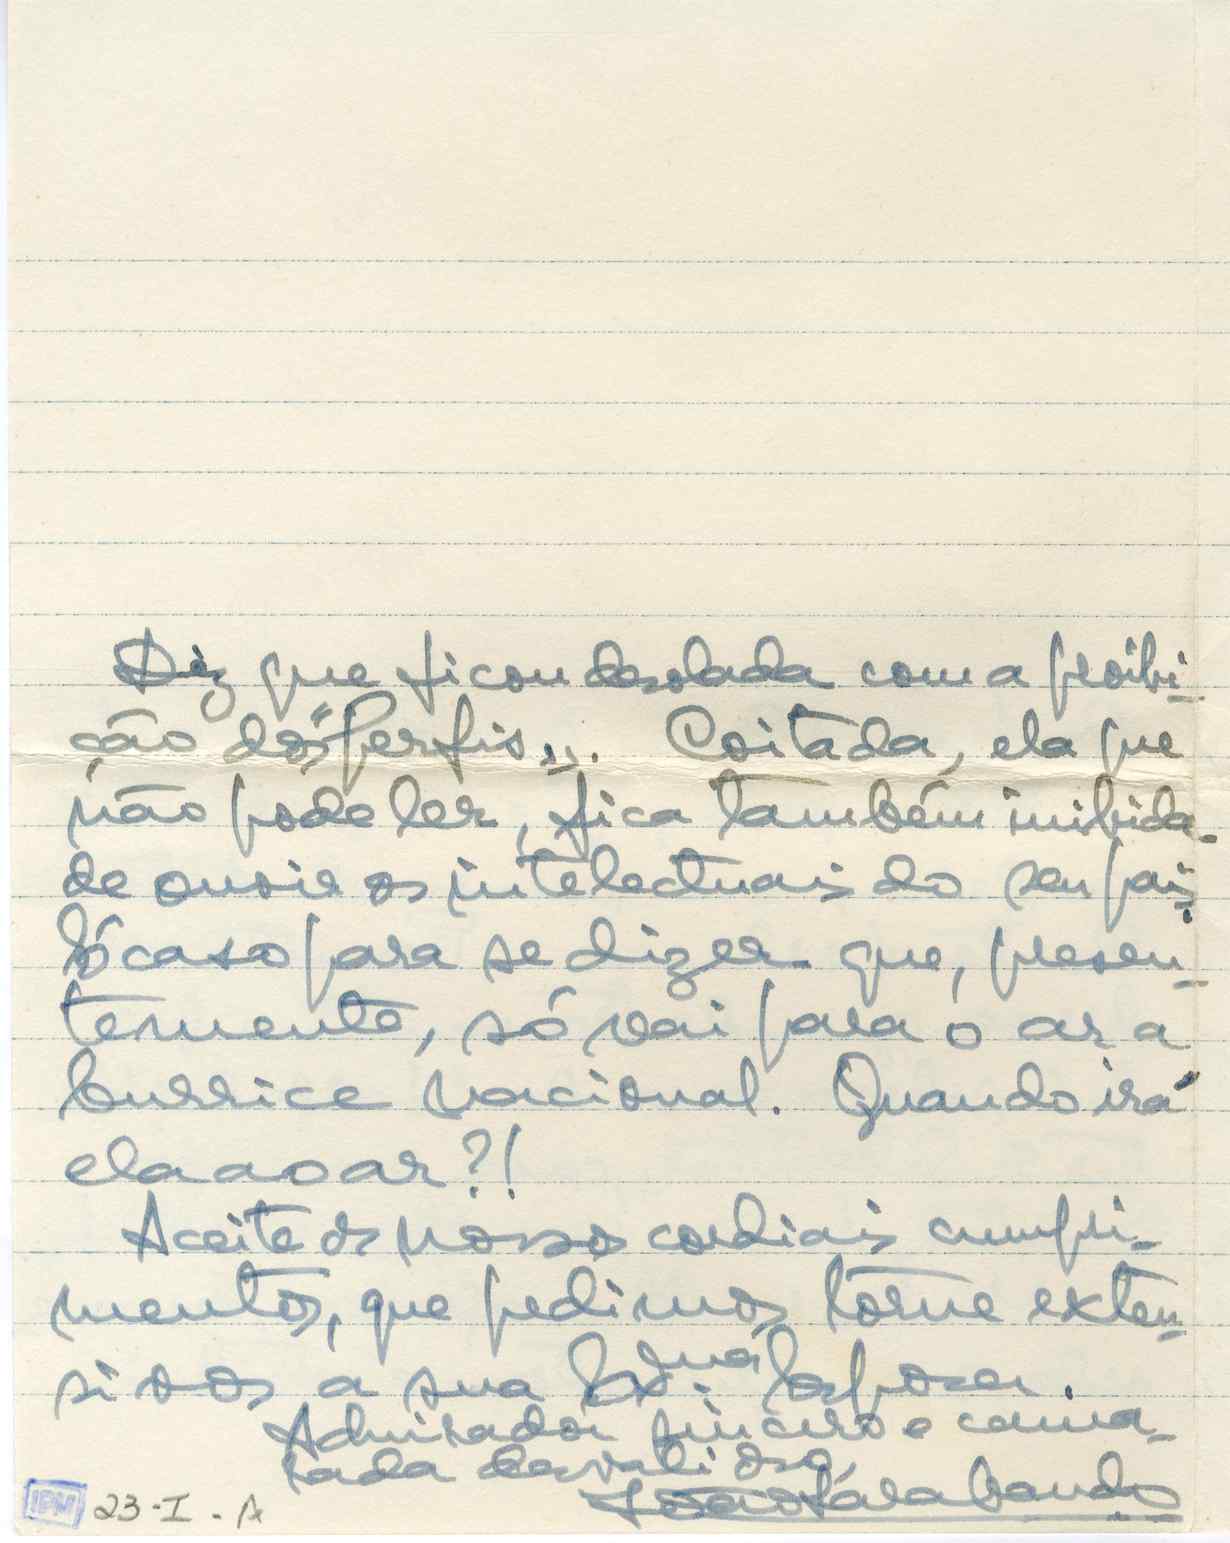 Diz que ficou desolada com a proibi-
ção dos "Perfis". Coitada, ela que
não pode ler, fica também inibida
de ouvir os intelectuais do seu país.
É caso para se dizer que, presen-
temente, só vai para o ar a
burrice nacional. Quando irá
ela ao ar?!
Aceite os nossos cordiais cumpri-
mentos, que pedimos torne exten-
sivos a sua Exma. Esposa.
Admirador sincero e cama-
rada desvalioso,
João Sarabando
IPM 23-I.A